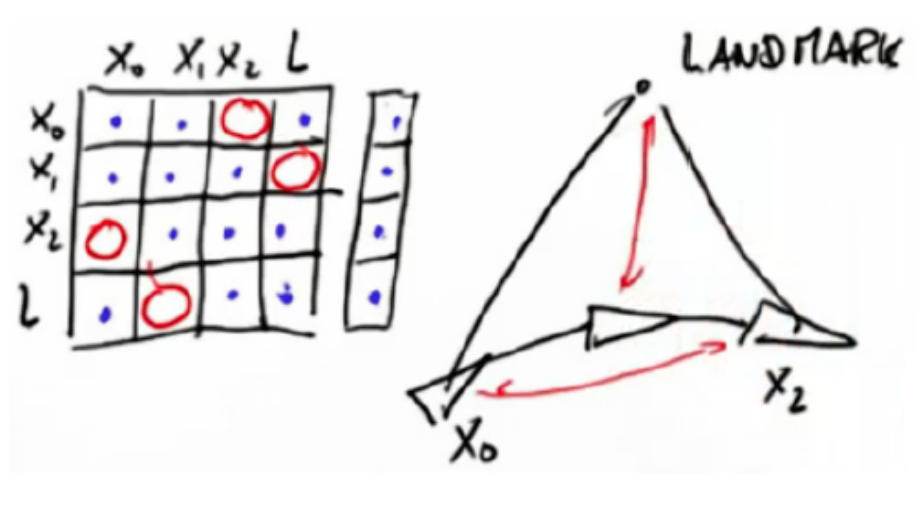 X₀ X₁ X₂ L
X₀
X₁
X₂
L
LANDMARK
X₀
X₂